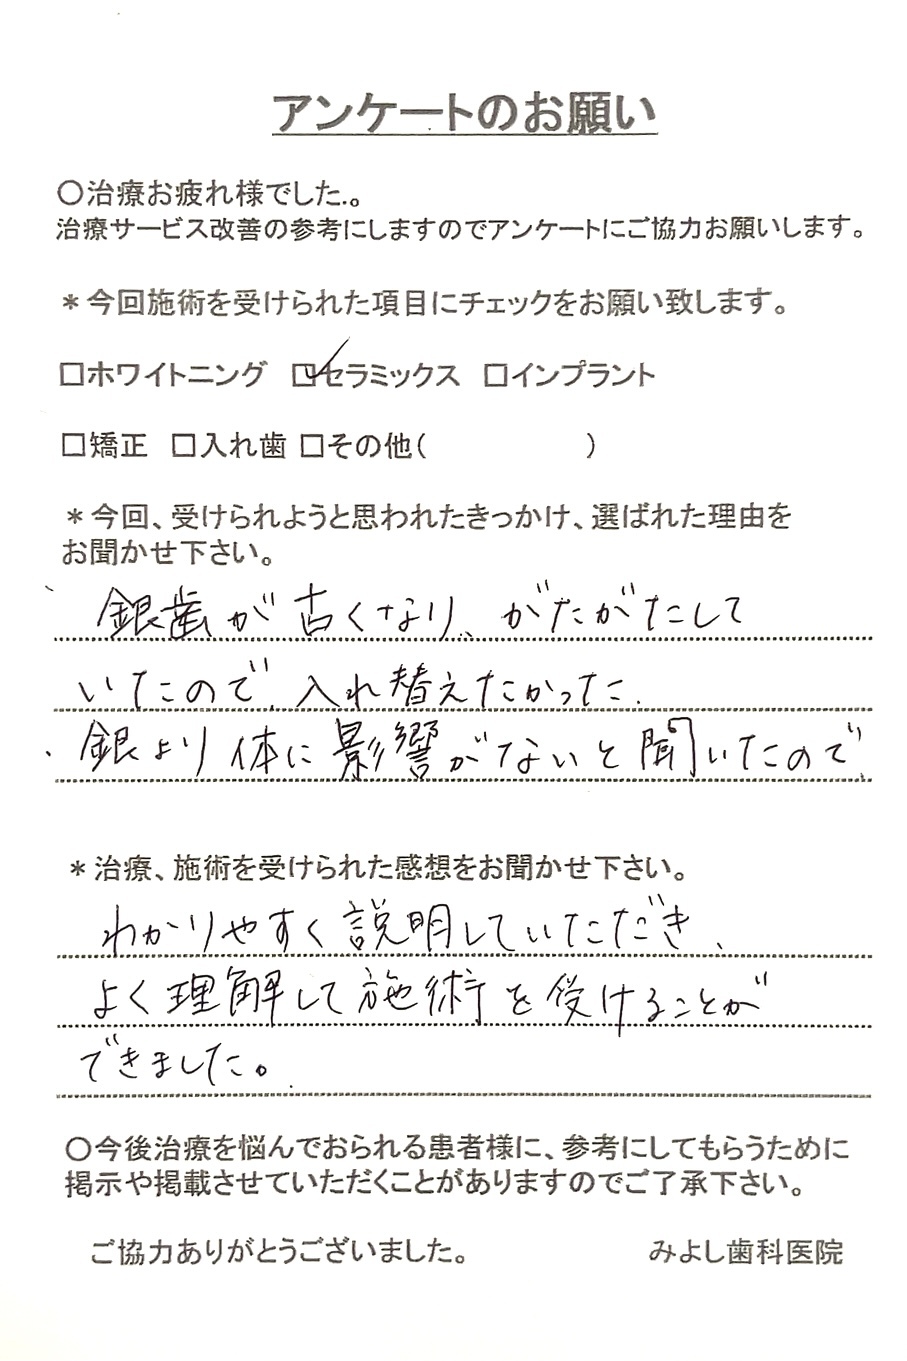 アンケートのお願い
○治療お疲れ様でした.。
治療サービス改善の参考にしますのでアンケートにご協力お願いします。
＊今回施術を受けられた項目にチェックをお願い致します。
□ホワイトニング ☑セラミックス □インプラント
□矯正 □入れ歯 □その他( )
＊今回、受けられようと思われたきっかけ、選ばれた理由を
お聞かせ下さい。
、銀歯が古くなり、がたがたして
いたので、入れ替えたかった.
・銀より体に影響がないと聞いたので、
＊治療、施術を受けられた感想をお聞かせ下さい。
わかりやすく説明していただき、
よく理解して施術を受けることが
できました。
○今後治療を悩んでおられる患者様に、参考にしてもらうために
掲示や掲載させていただくことがありますのでご了承下さい。
ご協力ありがとうございました。 みよし歯科医院